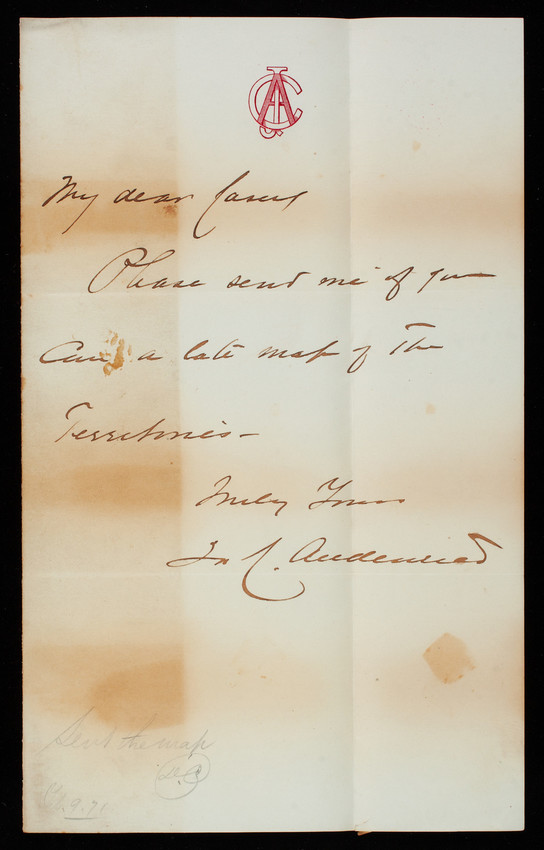 My dear Casey
Please send me if you
can a late map of the
Territories—
Truly Yours
J. C. Audenried
Sent the map